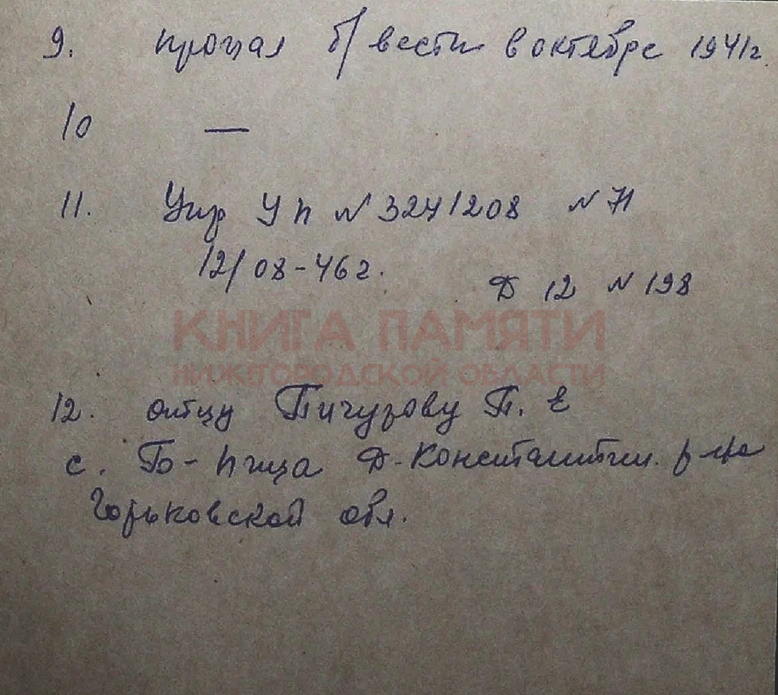 9. пропал б/вести в октябре 1941г.
10 —
11. Упр УП N 3241208 N 71
12/08-46г.
Д 12 N 198
КНИГА ПАМЯТИ
НИЖЕГОРОДСКОЙ ОБЛАСТИ
12. отцу Пичугову П. Е
с. Б-Пица Д-Константин. р-на
Горьковской обл.